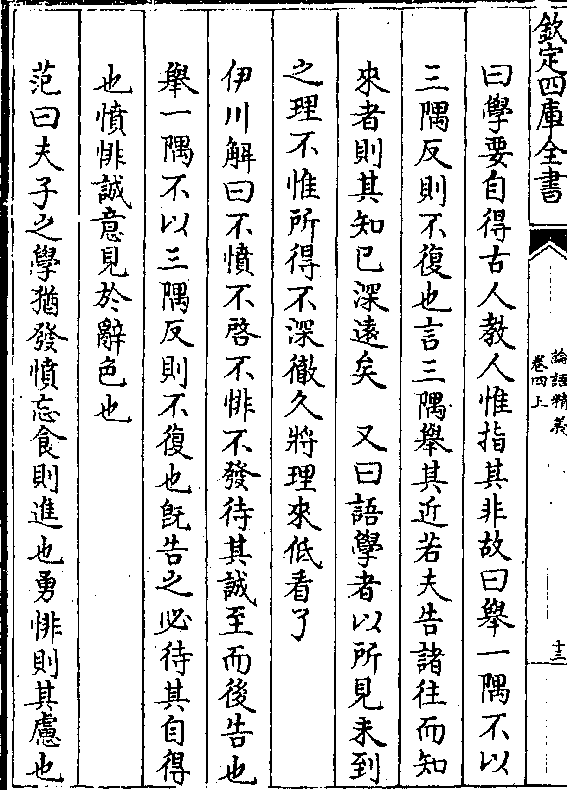 欽定四庫全書
論語精義
卷四上
十三
曰學要自得古人教人惟指其非故曰舉一隅不以
三隅反則不復也言三隅舉其近若夫告諸往而知
來者則其知已深遠矣　又曰語學者以所見未到
之理不惟所得不深徹久將理來低看了
伊川解曰不憤不啓不悱不發待其誠至而後告也
舉一隅不以三隅反則不復也旣告之必待其自得
也憤悱誠意見於辭色也
范曰夫子之學猶發憤忘食則進也勇悱則其慮也